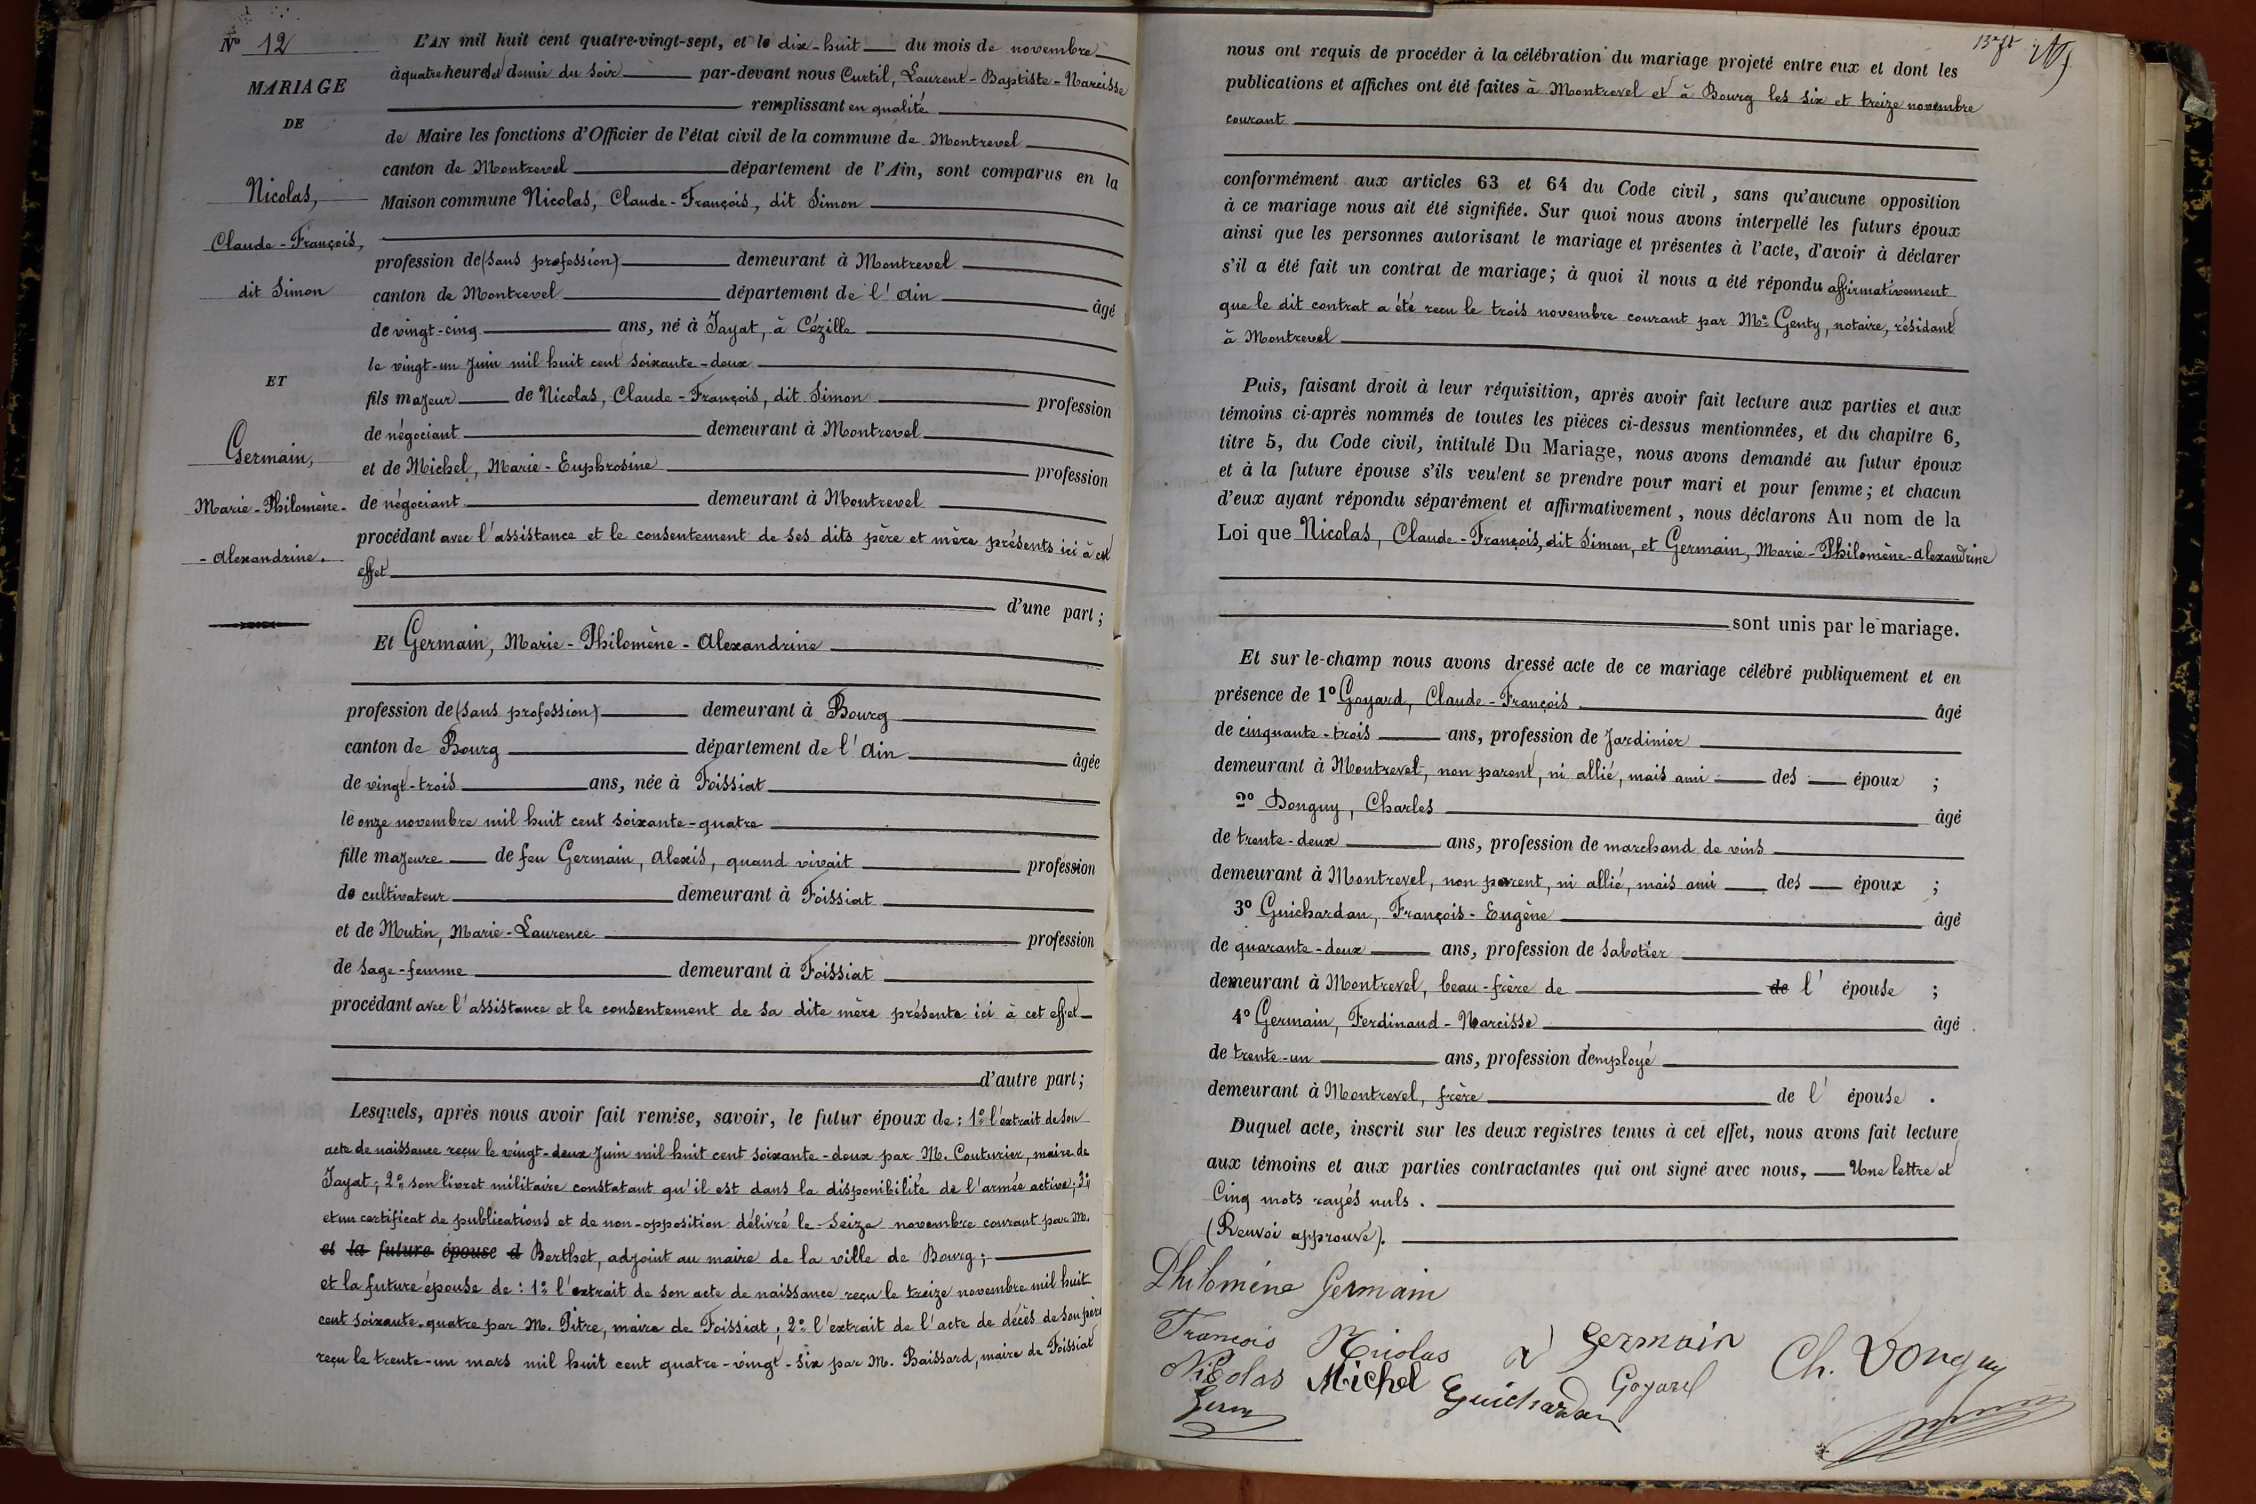 Nº 12
MARIAGE
DE
Nicolas,
Claude-François,
dit Simon
ET
Germain,
Marie-Philomène-
-Alexandrine.
L'AN mil huit cent quatre-vingt-sept, et le dix-huit du mois de novembre
à quatre heures et demie du soir par-devant nous Curtil, Laurent-Baptiste-Narcisse
remplissant en qualité
de Maire les fonctions d'Officier de l'état civil de la commune de Montrevel
canton de Montrevel département de l'Ain, sont comparus en la
Maison commune Nicolas, Claude-François, dit Simon
profession de (sans profession) demeurant à Montrevel
canton de Montrevel département de l'Ain âgé
de vingt-cinq ans, né à Jayat, à Cézille
le vingt-un Juin mil huit cent soixante-deux
fils majeur de Nicolas, Claude-François, dit Simon profession
de négociant demeurant à Montrevel
et de Michel, Marie-Euphrosine profession
de négociant demeurant à Montrevel
procédant avec l'assistance et le consentement de ses dits père et mère présents ici à cet
effet
d'une part;
Et Germain, Marie-Philomène-Alexandrine
profession de (sans profession) demeurant à Bourg
canton de Bourg département de l'Ain âgée
de vingt-trois ans, née à Foissiat
le onze novembre mil huit cent soixante-quatre
fille majeure de feu Germain, Alexis, quand vivait profession
de cultivateur demeurant à Foissiat
et de Mutin, Marie-Laurence profession
de sage-femme demeurant à Foissiat
procédant avec l'assistance et le consentement de sa dite mère présente ici à cet effet
d'autre part;
Lesquels, après nous avoir fait remise, savoir, le futur époux de: 1º l'extrait de son
acte de naissance reçu le vingt-deux Juin mil huit cent soixante-deux par M. Couturier, maire de
Jayat; 2º son livret militaire constatant qu'il est dans la disponibilité de l'armée active; 3º
et un certificat de publications et de non-opposition délivré le seize novembre courant par M.
et la future épouse d Berthet, adjoint au maire de la ville de Bourg;
et la future épouse de: 1º l'extrait de son acte de naissance reçu le treize novembre mil huit
cent soixante-quatre par M. Pitre, maire de Foissiat; 2º l'extrait de l'acte de décès de son père
reçu le trente-un mars mil huit cent quatre-vingt-six par M. Baissard, maire de Foissiat
nous ont requis de procéder à la célébration du mariage projeté entre eux et dont les
publications et affiches ont été faites à Montrevel et à Bourg les six et treize novembre
courant
conformément aux articles 63 et 64 du Code civil, sans qu'aucune opposition
à ce mariage nous ait été signifiée. Sur quoi nous avons interpellé les futurs époux
ainsi que les personnes autorisant le mariage et présentes à l'acte, d'avoir à déclarer
s'il a été fait un contrat de mariage; à quoi il nous a été répondu affirmativement
que le dit contrat a été reçu le trois novembre courant par Me Genty, notaire, résidant
à Montrevel
Puis, faisant droit à leur réquisition, après avoir fait lecture aux parties et aux
témoins ci-après nommés de toutes les pièces ci-dessus mentionnées, et du chapitre 6,
titre 5, du Code civil, intitulé Du Mariage, nous avons demandé au futur époux
et à la future épouse s'ils veulent se prendre pour mari et pour femme; et chacun
d'eux ayant répondu séparément et affirmativement, nous déclarons Au nom de la
Loi que Nicolas, Claude-François, dit Simon, et Germain, Marie-Philomène-Alexandrine
sont unis par le mariage.
Et sur-le-champ nous avons dressé acte de ce mariage célébré publiquement et en
présence de 1º Goyard, Claude-François âgé
de cinquante-trois ans, profession de Jardinier
demeurant à Montrevel, non parent, ni allié, mais ami des époux ;
2º Donguy, Charles âgé
de trente-deux ans, profession de marchand de vins
demeurant à Montrevel, non parent, ni allié, mais ami des époux ;
3º Guichardan, François-Eugène âgé
de quarante-deux ans, profession de sabotier
demeurant à Montrevel, beau-frère de de l'épouse ;
4º Germain, Ferdinand-Narcisse âgé
de trente-un ans, profession d'employé
demeurant à Montrevel, frère de l'épouse .
Duquel acte, inscrit sur les deux registres tenus à cet effet, nous avons fait lecture
aux témoins et aux parties contractantes qui ont signé avec nous, Une lettre et
Cinq mots rayés nuls.
(Renvoi approuvé).
Philomène Germain
François Nicolas Germain Ch. Donguy
Nicolas Michel Guichardan Goyard
Germ